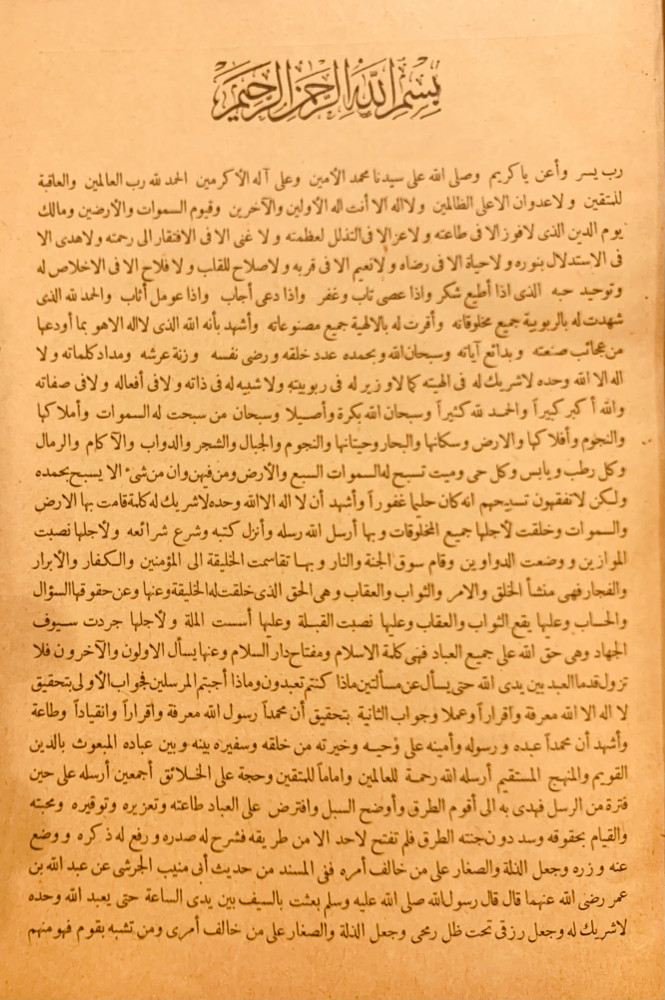 بسم الله الرحمن الرحيم
رب يسر وأعن ياكريم وصلى الله على سيدنا محمد الأمين وعلى آله الأكرمين الحمد لله رب العالمين والعاقبة
للمتقين ولاعدوان الاعلى الظالمين ولااله الا أنت اله الأولين والآخرين وقيوم السموات والأرضين ومالك
يوم الدين الذى لافوز الا فى طاعته ولاعز الا فى التذلل لعظمته ولا غنى الا فى الافتقار الى رحمته ولاهدى الا
فى الاستدلال بنوره ولاحياة الا فى رضاه ولانعيم الا فى قربه ولاصلاح للقلب ولا فلاح الا فى الاخلاص له
وتوحيد حبه الذى اذا أطيع شكر واذا عصى تاب وغفر واذا دعى أجاب واذا عومل أثاب والحمد لله الذى
شهدت له بالربوبية جميع مخلوقاته وأقرت له بالالهية جميع مصنوعاته وأشهد بأنه الله الذى لااله الاهو بما أودعها
من عجائب صنعته وبدائع آياته وسبحان الله وبحمده عدد خلقه ورضى نفسه وزنة عرشه ومداد كلماته ولا
اله الا الله وحده لاشريك له فى الهيته كما لاوزير له فى ربوبيته ولاشبيه له فى ذاته ولافى أفعاله ولافى صفاته
والله أكبر كبيراً والحمد لله كثيراً وسبحان الله بكرة وأصيلا وسبحان من سبحت له السموات وأملاكها
والنجوم وأفلاكها والارض وسكانها والبحار وحيتانها والنجوم والجبال والشجر والدواب والآكام والرمال
وكل رطب ويابس وكل حى وميت تسبح له السموات السبع والأرض ومن فيهن وان من شئ الا يسبح بحمده
ولكن لاتفقهون تسبيحهم انه كان حليما غفوراً وأشهد أن لا اله الاالله وحده لاشريك له كلمة قامت بها الارض
والسموات وخلقت لأجلها جميع المخلوقات وبها أرسل الله رسله وأنزل كتبه وشرع شرائعه ولأجلها نصبت
الموازين ووضعت الدواوين وقام سوق الجنة والنار وبها تقاسمت الخليقة الى المؤمنين والكفار والأبرار
والفجار فهى منشأ الخلق والامر والثواب والعقاب وهى الحق الذى خلقت له الخليقة وعنها وعن حقوقها السؤال
والحساب وعليها يقع الثواب والعقاب وعليها نصبت القبلة وعليها أسست الملة ولأجلها جردت سيوف
الجهاد وهى حق الله على جميع العباد فهى كلمة الاسلام ومفتاح دار السلام وعنها يسأل الاولون والآخرون فلا
تزول قدما العبد بين يدى الله حتى يسأل عن مسألتين ماذا كنتم تعبدون وماذا أجبتم المرسلين فجواب الأولى بتحقيق
لا اله الا الله معرفة واقراراً وعملا وجواب الثانية بتحقيق أن محمداً رسول الله معرفة واقراراً وانقياداً وطاعة
وأشهد أن محمداً عبده ورسوله وأمينه على وحيه وخيرته من خلقه وسفيره بينه وبين عباده المبعوث بالدين
القويم والمنهج المستقيم أرسله الله رحمة للعالمين واماماً للمتقين وحجة على الخلائق أجمعين أرسله على حين
فترة من الرسل فهدى به الى أقوم الطرق وأوضح السبل وافترض على العباد طاعته وتعزيره وتوقيره ومحبته
والقيام بحقوقه وسد دون جنته الطرق فلم تفتح لاحد الا من طريقه فشرح له صدره ورفع له ذكره ووضع
عنه وزره وجعل الذلة والصغار على من خالف أمره ففى المسند من حديث أبى منيب الجرشى عن عبد الله بن
عمر رضى الله عنهما قال قال رسول الله صلى الله عليه وسلم بعثت بالسيف بين يدى الساعة حتى يعبد الله وحده
لاشريك له وجعل رزقى تحت ظل رمحى وجعل الذلة والصغار على من خالف أمرى ومن تشبه بقوم فهو منهم